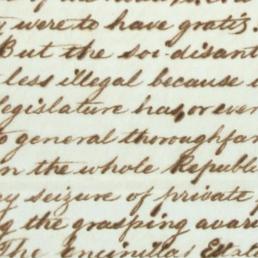 were to have gratis.
But the soi-disant
less illegal because
legislature has, or ever
general thoroughfar
n the whole Republi
y seizure of private
g the grasping avar
The Encinillas Esta